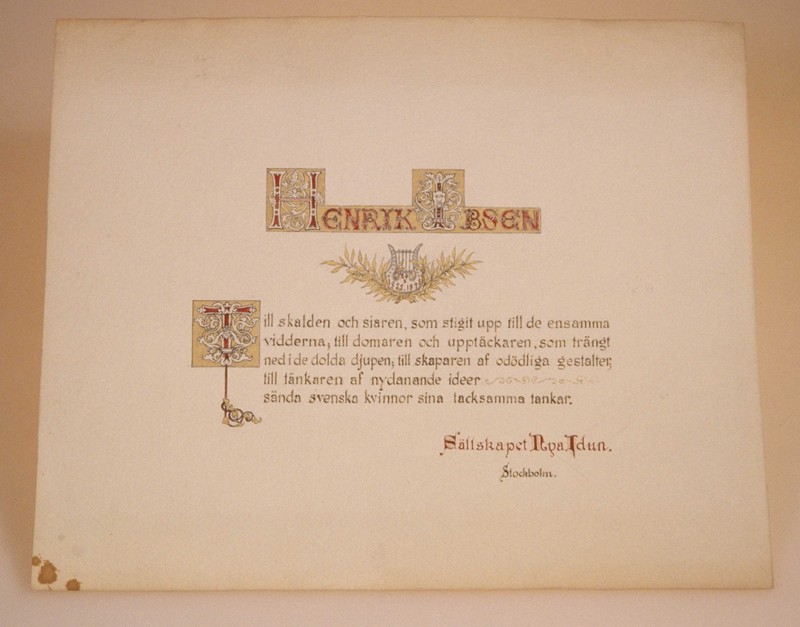 HENRIK IBSEN
Till skalden och siaren, som stigit upp till de ensamma
vidderna, till domaren och upptäckaren, som trängt
ned i de dolda djupen, till skaparen af odödliga gestalter,
till tänkaren af nydanande ideer
sända svenska kvinnor sina tacksamma tankar.
Sällskapet Nya Idun.
Stockholm.